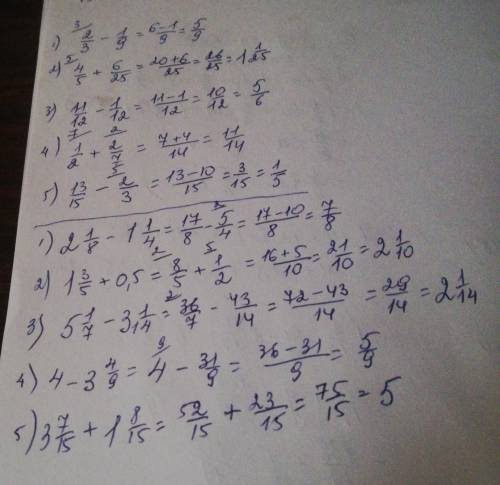 1) 2/3 ³ - 1/9 = 6-1/9 = 5/9
2) 4/5 ⁵ + 6/25 = 20+6/25 = 26/25 = 1 1/25
3) 11/12 - 1/12 = 11-1/12 = 10/12 = 5/6
4) 1/2 ⁷ + 2/7 ² = 7+4/14 = 11/14
5) 13/15 - 2/3 ⁵ = 13-10/15 = 3/15 = 1/5
1) 2 1/8 - 1 1/4 = 17/8 - 5/4 ² = 17-10/8 = 7/8
2) 1 3/5 + 0,5 = 8/5 ² + 1/2 ⁵ = 16+5/10 = 21/10 = 2 1/10
3) 5 1/7 - 3 1/14 = 36/7 ² - 43/14 = 72-43/14 = 29/14 = 2 1/14
4) 4 - 3 4/9 = 4 ⁹ - 31/9 = 36-31/9 = 5/9
5) 3 7/15 + 1 8/15 = 52/15 + 23/15 = 75/15 = 5